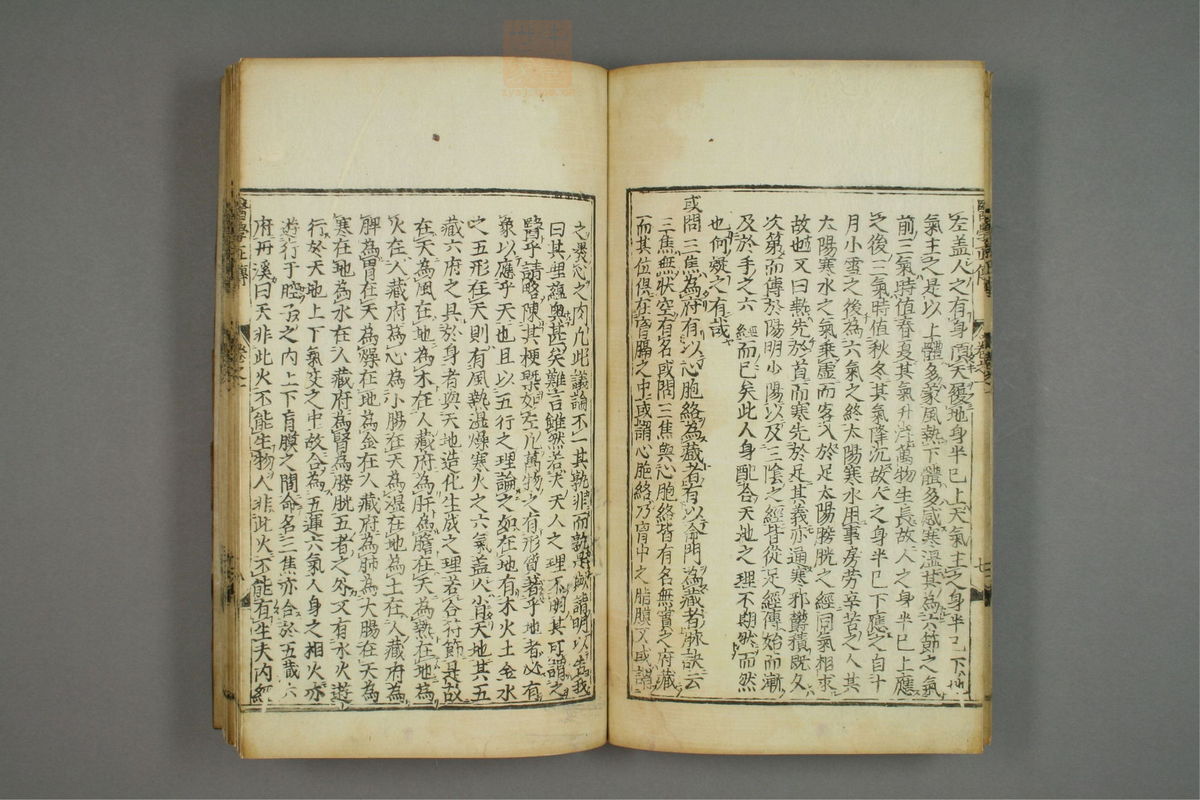 左蓋人之有身頂天履地身半已上天氣主之身半已下地
氣主之是以上體多蒙風熱下體多感寒濕其為六節之氣
前三氣時值春夏其氣升浮萬物生長故人之身半已上應
之後三氣時值秋冬其氣降沉故人之身半已下應之自十
月小雪之後為六氣之終太陽寒水用事房勞辛苦之人其
太陽寒水之氣乘虛而客入於足太陽膀胱之經同氣相求
故也又曰熱先於首而寒先於足其義亦通寒邪鬱積既久
次第而傳於陽明少陽以及三陰之經皆從足經傳始而漸
及於手之六經而已矣此人身配合天地之理不期然而然
也何疑之有哉
或問三焦為府有以心胞絡為藏者有以命門為藏者脉訣云
三焦無狀空有名或問三焦與心胞絡皆有名無實之府藏
而其位俱在胷膈之中或謂心胞絡乃胷中之脂膜又或謂
之裹心之肉凡此議論不一其孰非而孰是歟請明以告我
曰其理蘊奧甚矣難言雖然若夫天人之理不明其可謂之
醫乎請略陳其梗槩如左凡萬物之有形質著乎地者必有
象以應乎天也且以五行之理論之如在地有木火土金水
之五形在天則有風熱濕燥寒火之六氣蓋人肖天地其五
藏六府之具於身者與天地造化生成之理若合符節是故
在天為風在地為木在人藏府為肝為膽在天為熱在地為
火在人藏府為心為小腸在天為濕在地為土在人藏府為
脾為胃在天為燥在地為金在人藏府為肺為大腸在天為
寒在地為水在人藏府為腎為膀胱五者之外又有水火遊
行於天地上下氣交之中故合為五運六氣人身之相火亦
遊行于腔子之內上下肓膜之間命名三焦亦合於五藏六
府丹溪曰天非此火不能生物人非此火不能有生夫內經